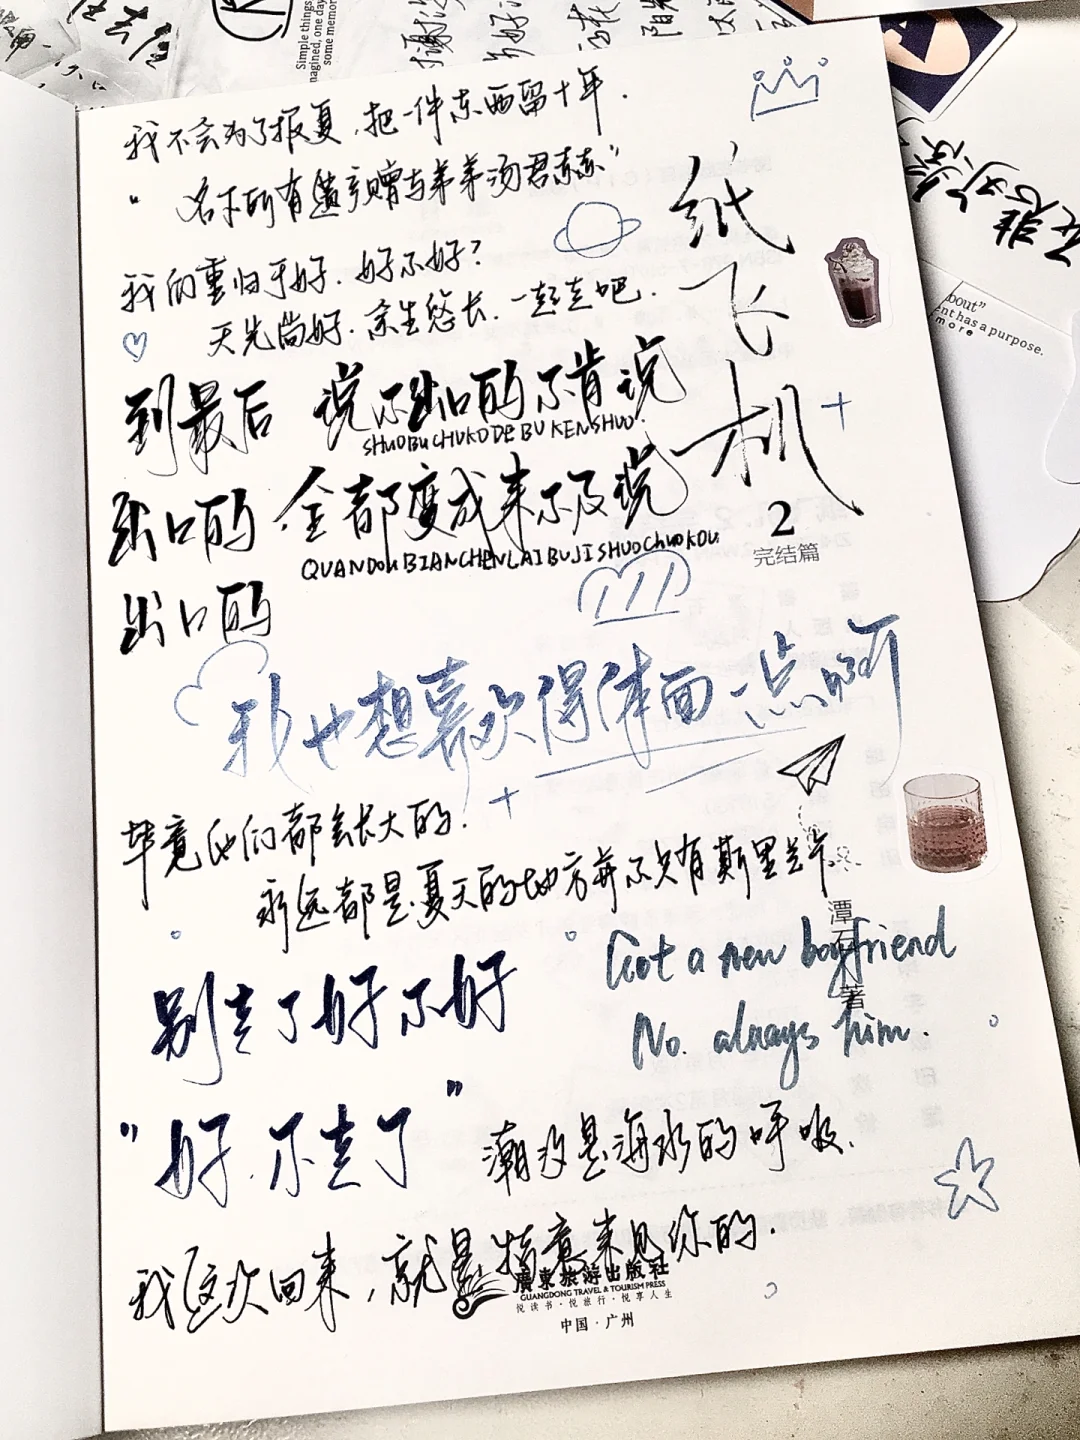 Simple things
magined, one day
some memory
我不会为了报复，把一件东西留十年．
“名下所有遗产赠与弟弟汤君赫”
我们重归于好．好不好？
天光尚好．余生悠长．一起走吧．
纸飞机
2
完结篇
到最后 说不出口的不肯说
SHUOBUCHUKODEBUKENSHUO
出口的 全都变成来不及说
QUANDOUBIANCHENLAIBUJISHUOCHUOKOU
出口的
我也想喜欢得体面一点啊
毕竟他们都会长大的．
永远都是夏天的地方并不只有斯里兰卡
潭石 著
别走了好不好
Got a new boyfriend
No. always him.
“好．不走了”
潮汐是海水的呼吸．
我这次回来，就是特意来见你的．
廣東旅游出版社
GUANGDONG TRAVEL & TOURISM PRESS
悦读书·悦旅行·悦享人生
中国·广州
bout”
ent has a purpose.
more